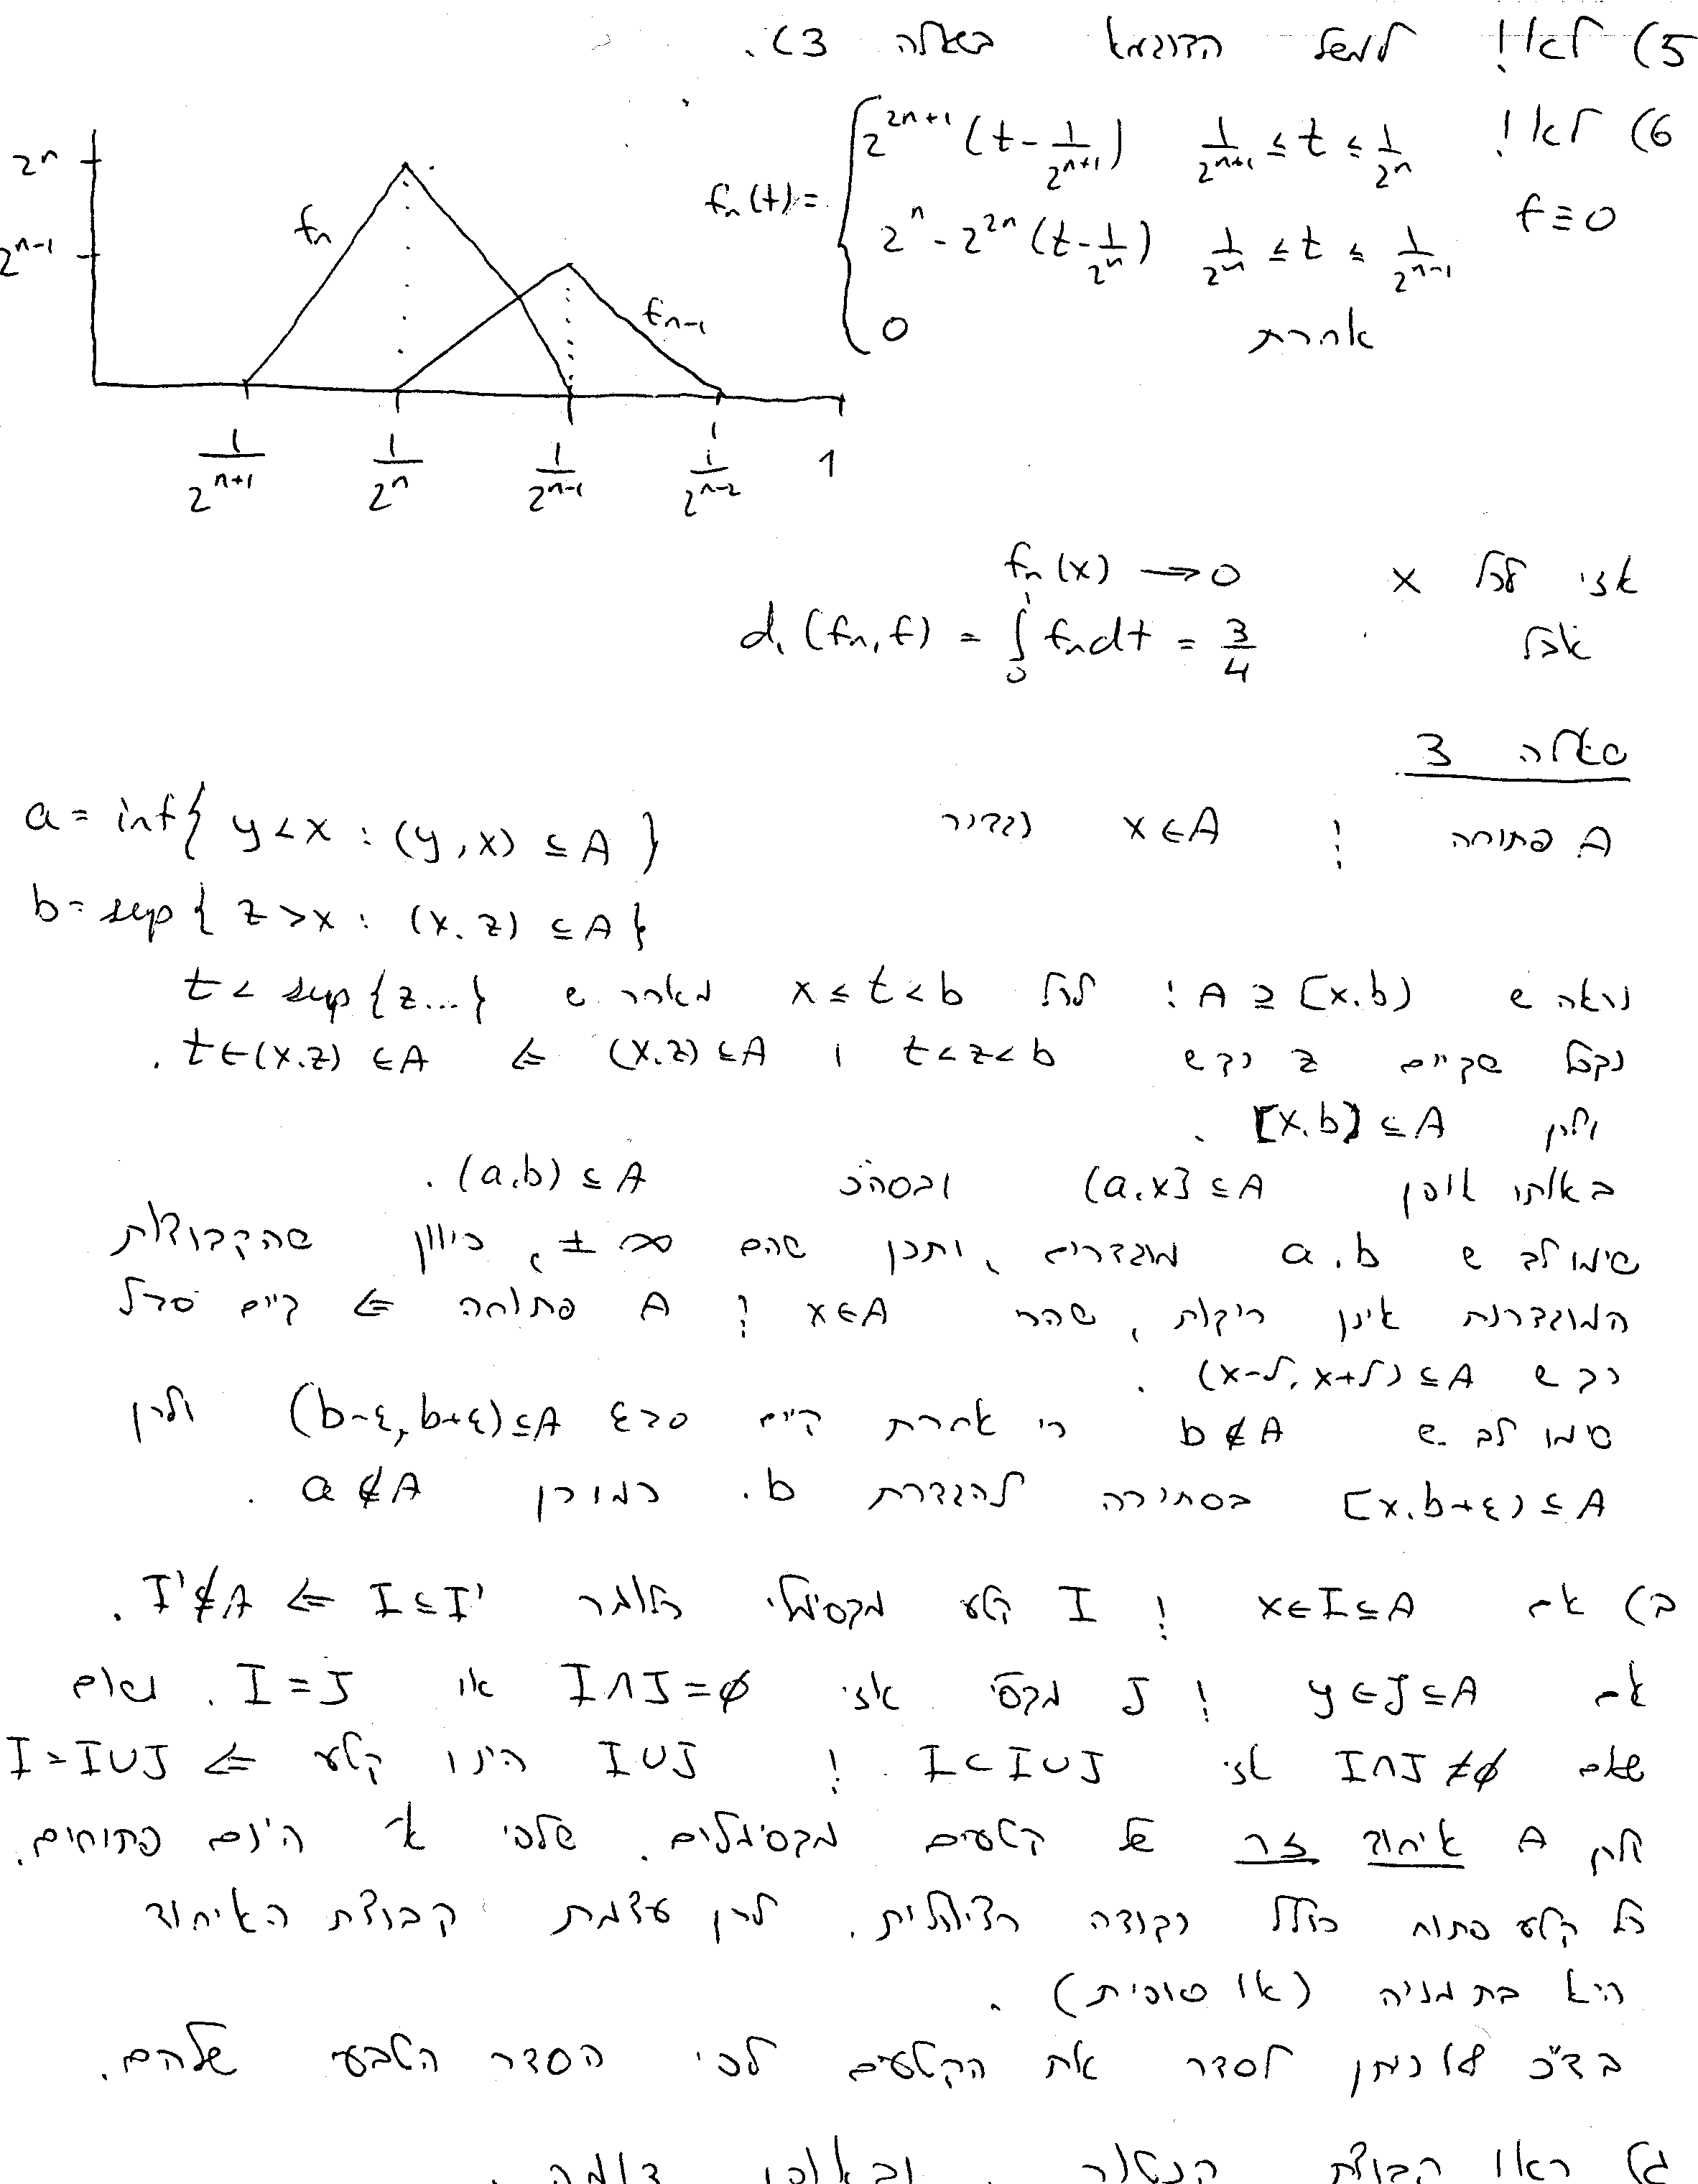 5) לא! למשל הדוגמא בשאלה 3).
6) לא! f_n(t) = { 2^{2n+1}(t - 1/2^{n+1})   1/2^{n+1} ≤ t ≤ 1/2^n
f ≡ 0   2^n - 2^{2n}(t - 1/2^n)   1/2^n ≤ t ≤ 1/2^{n-1}
0   אחרת
2^n
2^{n-1}
f_n
f_{n-1}
1/2^{n+1}   1/2^n   1/2^{n-1}   1/2^{n-2}   1
אזי לכל x   f_n(x) → 0
אבל   d_1(f_n, f) = ∫_0^1 f_n dt = 3/4
שאלה 3
A פתוחה ! x∈A נגדיר   a = inf{ y < x : (y, x) ⊆ A }
b = sup{ z > x : (x, z) ⊆ A }
נראה ש A ⊇ [x, b) : לכל x ≤ t < b מאחר ש t < sup{z...}
נקבל שקיים z כך ש t < z < b ו (x, z) ⊆ A ⇐ t ∈ (x, z) ⊆ A.
ולכן [x, b) ⊆ A.
באותו אופן (a, x] ⊆ A ובסה"כ (a, b) ⊆ A.
שימו לב ש a, b מוגדרים, ותכן שהם ±∞, כיוון שהקבוצות
המוגדרות אינן ריקות, שהרי x∈A ! A פתוחה ⇐ קיים δ>0
כך ש (x-δ, x+δ) ⊆ A.
שימו לב ש b ∉ A כי אחרת קיים ε>0 (b-ε, b+ε) ⊆ A ולכן
[x, b+ε) ⊆ A בסתירה להגדרת b. כמו כן a ∉ A.
ב) אם x ∈ I ⊆ A ! I קטע מקסימלי כלומר I ⊆ I' ⇐ I' ⊄ A.
אם y ∈ J ⊆ A ! J מקסי' אזי I∩J = ∅ או I = J.
שאם I∩J ≠ ∅ אזי I ⊂ I∪J ! I∪J הינו קטע ⇐ I = I∪J
לכן A איחוד זר של קטעים מקסימלים. שלפי א' הינם פתוחים.
כל קטע פתוח כולל נקודה רציונלית. לכן עצמת קבוצת האיחוד
היא בת מניה (או סופית).
בד"כ לא ניתן לסדר את הקטעים לפי הסדר הטבעי שלהם.